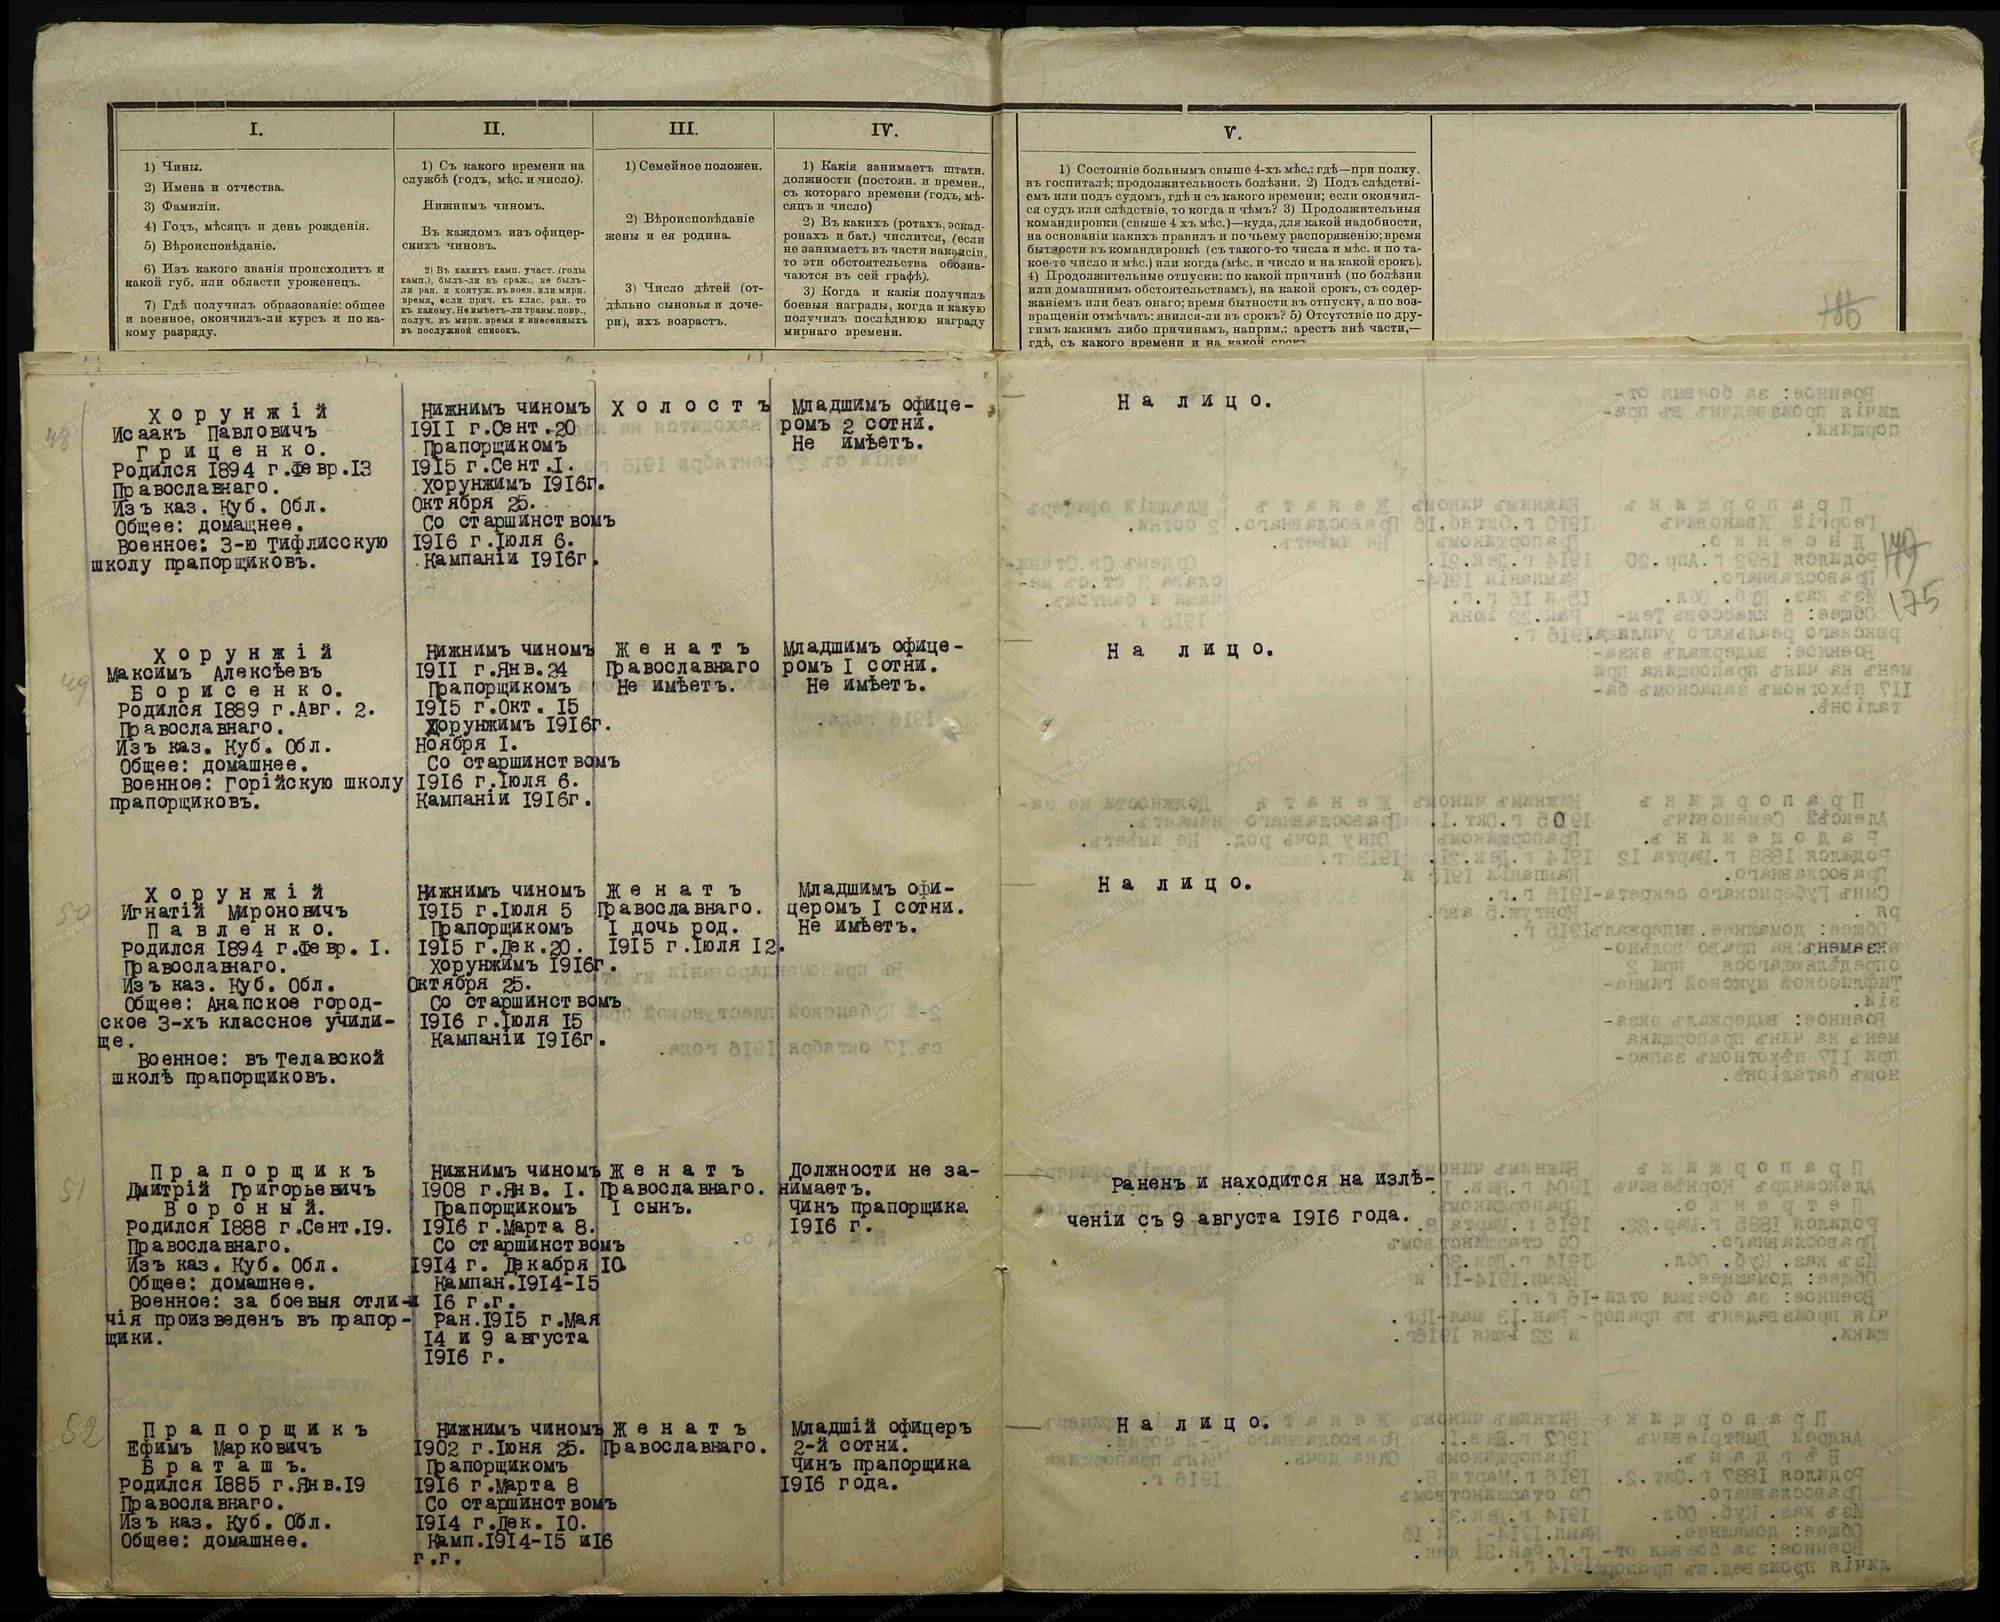 I.
1) Чины.
2) Имена и отчества.
3) Фамиліи.
4) Годъ, мѣсяцъ и день рожденія.
5) Вѣроисповѣданіе.
6) Изъ какого званія происходитъ и
какой губ. или области уроженецъ.
7) Гдѣ получилъ образованіе: общее
и военное, окончилъ-ли курсъ и по ка-
кому разряду.
II.
1) Съ какого времени на
службѣ (годъ, мѣс. и число).
Нижнимъ чиномъ.
Въ каждомъ изъ офицер-
скихъ чиновъ.
2) Въ какихъ камп. участ. (годы
камп.), былъ-ли въ сраж., не былъ-
ли ран. и контуж. въ воен. или мирн.
время, если прич. къ клас. ран. то
къ какому. Не имѣетъ-ли травм. повр.,
получ. въ мирн. время и внесенныхъ
въ послужной списокъ.
III.
1) Семейное положен.
2) Вѣроисповѣданіе
жены и ея родина.
3) Число дѣтей (от-
дѣльно сыновья и доче-
ри), ихъ возрастъ.
IV.
1) Какія занимаетъ штатн.
должности (постоян. и времен.,
съ котораго времени (годъ, мѣ-
сяцъ и число)
2) Въ какихъ (ротахъ, эскад-
ронахъ и бат.) числится, (если
не занимаетъ въ части вакансіи,
то эти обстоятельства обозна-
чаются въ сей графѣ).
3) Когда и какія получилъ
боевыя награды, когда и какую
получилъ послѣднюю награду
мирнаго времени.
V.
1) Состояніе больнымъ свыше 4-хъ мѣс.: гдѣ—при полку.
въ госпиталѣ; продолжительность болѣзни. 2) Подъ слѣдстві-
емъ или подъ судомъ, гдѣ и съ какого времени; если окончил-
ся судъ или слѣдствіе, то когда и чѣмъ? 3) Продолжительныя
командировки (свыше 4 хъ мѣс.)—куда, для какой надобности,
на основаніи какихъ правилъ и по чьему распоряженію; время
бытности въ командировкѣ (съ такого-то числа и мѣс. и по та-
кое-то число и мѣс.) или когда (мѣс. и число и на какой срокъ).
4) Продолжительные отпуски: по какой причинѣ (по болѣзни
или домашнимъ обстоятельствамъ), на какой срокъ, съ содер-
жаніемъ или безъ онаго; время бытности въ отпуску, а по воз-
вращеніи отмѣчать: явился-ли въ срокъ? 5) Отсутствіе по дру-
гимъ какимъ либо причинамъ, наприм.: арестъ внѣ части,—
гдѣ, съ какого времени и на какой срокъ
175
48
Хорунжій
Исаакъ Павловичъ
Гриценко.
Родился 1894 г.Февр.13
Православнаго.
Изъ каз. Куб. Обл.
Общее: домашнее.
Военное: 3-ю Тифлисскую
школу прапорщиковъ.
Нижнимъ чиномъ
1911 г.Сент.20
Прапорщикомъ
1915 г.Сент.1.
Хорунжимъ 1916г.
Октября 25.
Со старшинствомъ
1916 г.Іюля 6.
Кампаніи 1916г.
Холостъ
Младшимъ офице-
ромъ 2 сотни.
Не имѣетъ.
На лицо.
49
Хорунжій
Максимъ Алексѣевъ
Борисенко.
Родился 1889 г.Авг. 2.
Православнаго.
Изъ каз. Куб. Обл.
Общее: домашнее.
Военное: Горійскую школу
прапорщиковъ.
Нижнимъ чиномъ
1911 г.Янв.24
Прапорщикомъ
1915 г.Окт. 15
Хорунжимъ 1916г.
Ноября 1.
Со старшинствомъ
1916 г.Іюля 6.
Кампаніи 1916г.
Женатъ
Православнаго
Не имѣетъ.
Младшимъ офице-
ромъ I сотни.
Не имѣетъ.
На лицо.
50
Хорунжій
Игнатій Мироновичъ
Павленко.
Родился 1894 г.Февр. 1.
Православнаго.
Изъ каз. Куб. Обл.
Общее: Анапское город-
ское 3-хъ классное учили-
ще.
Военное: въ Телавской
школѣ прапорщиковъ.
Нижнимъ чиномъ
1915 г.Іюля 5
Прапорщикомъ
1915 г.Дек.20.
Хорунжимъ 1916г.
Октября 25.
Со старшинствомъ
1916 г.Іюля 15
Кампаніи 1916г.
Женатъ
Православнаго.
I дочь род.
1915 г.Іюля 12.
Младшимъ офи-
церомъ I сотни.
Не имѣетъ.
На лицо.
51
Прапорщикъ
Дмитрій Григорьевичъ
Вороный.
Родился 1888 г.Сент.19.
Православнаго.
Изъ каз. Куб. Обл.
Общее: домашнее.
Военное: за боевыя отли-
чія произведенъ въ прапор-
щики.
Нижнимъ чиномъ
1908 г.Янв. 1.
Прапорщикомъ
1916 г.Марта 8.
Со старшинствомъ
1914 г. Декабря 10.
Кампан.1914-15
и 16 г.г.
Ран.1915 г.Мая
14 и 9 августа
1916 г.
Женатъ
Православнаго.
I сынъ.
Должности не за-
нимаетъ.
Чинъ прапорщика
1916 г.
Раненъ и находится на излѣ-
ченіи съ 9 августа 1916 года.
52
Прапорщикъ
Ефимъ Марковичъ
Браташъ.
Родился 1885 г.Янв.19
Православнаго.
Изъ каз. Куб. Обл.
Общее: домашнее.
Нижнимъ чиномъ
1902 г.Іюня 25.
Прапорщикомъ
1916 г.Марта 8
Со старшинствомъ
1914 г.Дек. 10.
Камп.1914-15 и16
г.г.
Женатъ
Православнаго.
Младшій офицеръ
2-й сотни.
Чинъ прапорщика
1916 года.
На лицо.